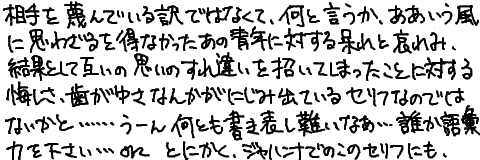 相手を蔑んでいる訳ではなくて、何と言うか、ああいう風
に思わざるを得なかったあの青年に対する呆れと哀れみ、
結果として互いの思いのすれ違いを招いてしまったことに対する
悔しさ、歯がゆさなんかがにじみ出ているセリフなのでは
ないかと……うーん何とも書き表し難いなあ…誰か語彙
力を下さい…orz とにかく、ジャハンナでのこのセリフにも、